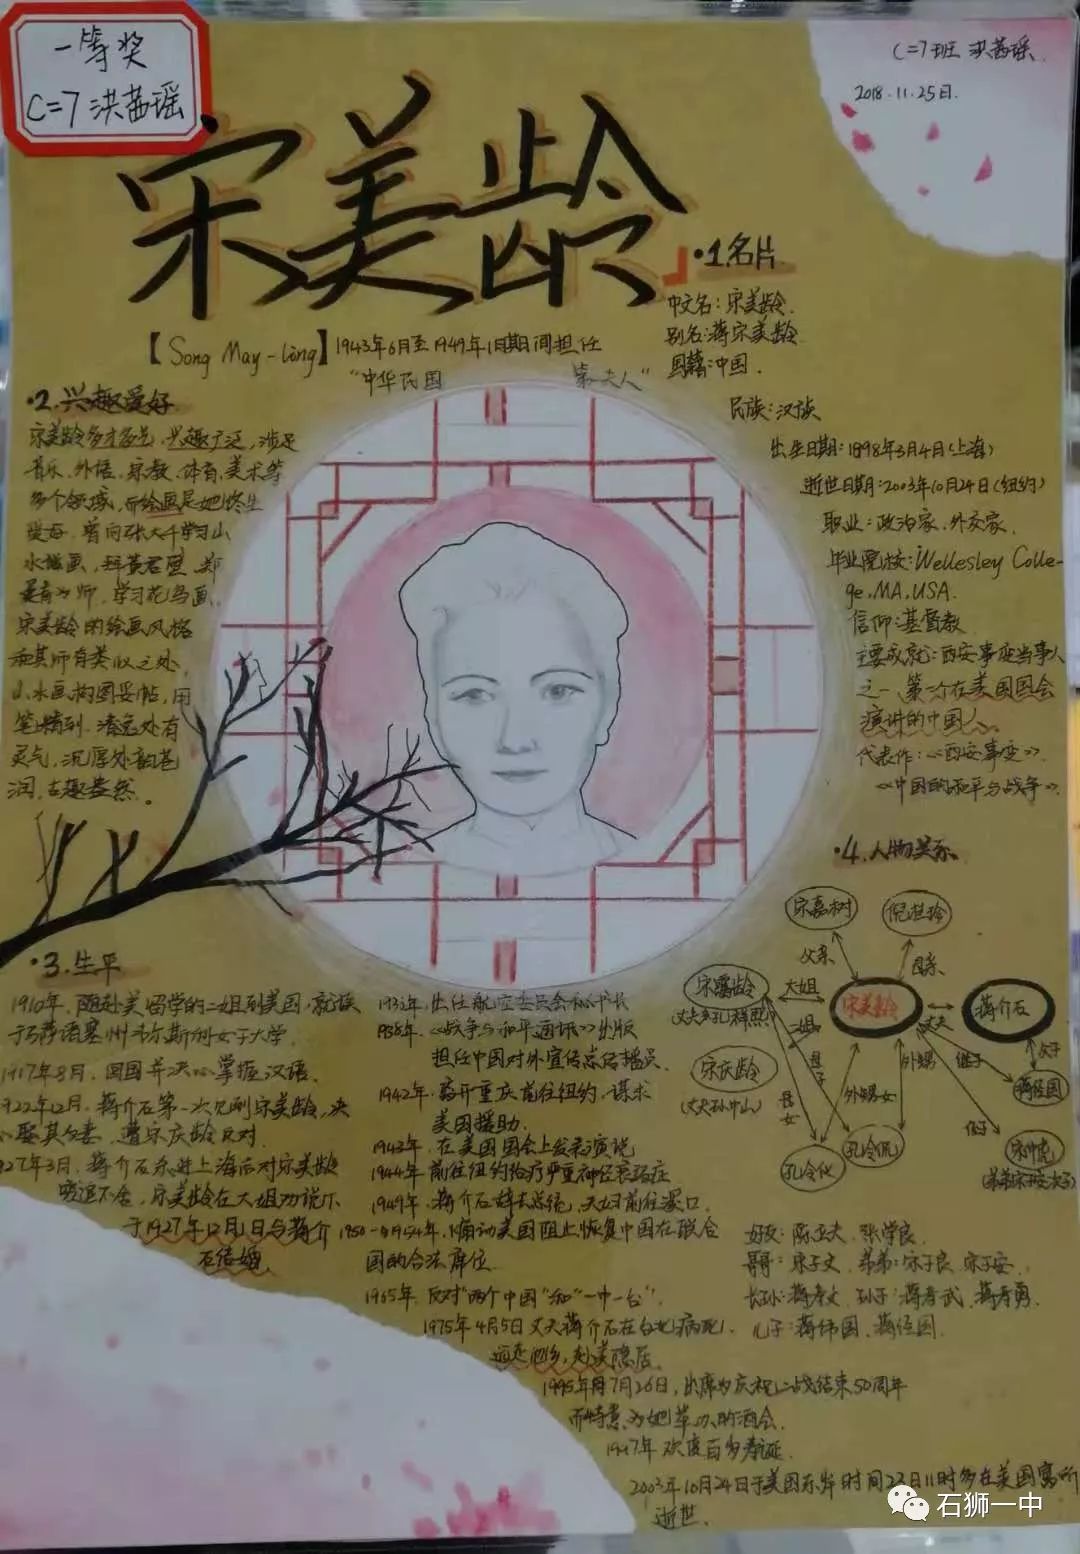 一等奖
C=7 洪茜瑶
C=7班 洪茜瑶.
2018.11.25日.
宋美龄
【Song May-ling】1943年6月至1949年1月期间担任
"中华民国 第一夫人"
·1.名片
中文名:宋美龄.
别名:蒋宋美龄
国籍:中国.
民族:汉族
出生日期:1898年3月4日(上海)
逝世日期:2003年10月24日(纽约)
职业:政治家、外交家.
毕业院校:Wellesley Colle-
ge,MA,USA.
信仰:基督教
主要成就:西安事变当事人
之一、第一次在美国国会
演讲的中国人.
代表作:《西安事变》.
《中国的和平与战争》.
·2.兴趣爱好
宋美龄多才多艺,兴趣广泛,涉足
音乐、外语、宗教、体育、美术等
多个领域,而绘画是她终生
爱好.曾向张大千学习山
水国画,拜黄君璧、郑
曼青为师,学习花鸟画,
宋美龄的绘画风格
和其师有类似之处,
山水画构图妥帖,用
笔精到.清逸处有
灵气,沉厚处韵苍
润,古趣盎然。
·3.生平
1910年,随赴美留学的二姐到美国,就读
于马萨诸塞州韦尔斯利女子大学.
1917年8月,回国并决心掌握汉语.
1922年12月,蒋介石第一次见到宋美龄,决
心娶其为妻,遭宋庆龄反对.
1927年3月,蒋介石东进上海后对宋美龄
穷追不舍,宋美龄在大姐劝说下
于1927年12月1日与蒋介
石结婚.
出任航空委员会秘书长
1938年,《战争与和平通讯》出版
担任中国对外宣传总结播员
1942年,离开重庆前往纽约,谋求
美国援助.
1943年,在美国国会上发表演说
1944年 前往纽约治疗严重神经衰弱症
1949年,蒋介石辞去总统,夫妇前往溪口.
1950-1954年,煽动美国阻止恢复中国在联合
国的合法席位.
1965年,反对"两个中国"和"一中一台".
1975年4月5日丈夫蒋介石在台北病死,
远走他乡,赴美隐居.
1995年7月26日,出席为庆祝二战结束50周年
而特意为她举办的酒会.
1997年 欢度百岁寿诞.
2003年10月24日于美国东岸时间23日11时多在美国寓所
逝世.
·4.人物关系
宋嘉树
倪桂珍
父亲
母亲
宋霭龄
(丈夫为孔祥熙)
大姐
宋美龄
丈夫
蒋介石
二姐
宋庆龄
(丈夫孙中山)
长子
长女
外甥女
外甥
继子
次子
蒋经国
侄子
孔令仪
孔令侃
宋仲虎
好友:陈立夫、张学良.
哥哥:宋子文,弟弟:宋子良、宋子安.
长孙:蒋孝文,孙子:蒋孝武,蒋孝勇.
儿子:蒋纬国、蒋经国.
石狮一中